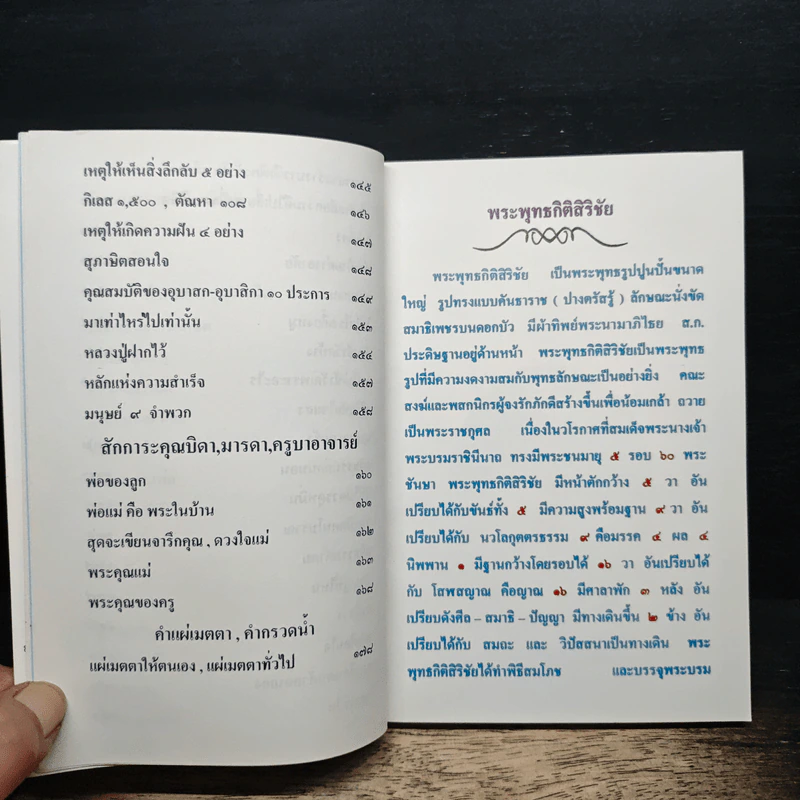 เหตุให้เห็นสิ่งลึกลับ ๕ อย่าง ๑๔๕
กิเลส ๑,๕๐๐ , ตัณหา ๑๐๘ ๑๔๖
เหตุให้เกิดความฝัน ๔ อย่าง ๑๔๗
สุภาษิตสอนใจ ๑๔๘
คุณสมบัติของอุบาสก-อุบาสิกา ๑๐ ประการ ๑๔๙
มาเท่าไหร่ไปเท่านั้น ๑๕๓
หลวงปู่ฝากไว้ ๑๕๔
หลักแห่งความสำเร็จ ๑๕๗
มนุษย์ ๙ จำพวก ๑๕๘
สักการะคุณบิดา,มารดา,ครูบาอาจารย์
พ่อของลูก ๑๖๐
พ่อแม่ คือ พระในบ้าน ๑๖๑
สุดจะเขียนจารึกคุณ , ดวงใจแม่ ๑๖๒
พระคุณแม่ ๑๖๓
พระคุณของครู ๑๖๘
คำแผ่เมตตา , คำกรวดน้ำ
แผ่เมตตาให้ตนเอง , แผ่เมตตาทั่วไป ๑๗๘
พระพุทธกิติสิริชัย
พระพุทธกิติสิริชัย เป็นพระพุทธรูปปูนปั้นขนาด
ใหญ่ รูปทรงแบบคันธาราช ( ปางตรัสรู้ ) ลักษณะนั่งขัด
สมาธิเพชรบนดอกบัว มีผ้าทิพย์พระนามาภิไธย ส.ก.
ประดิษฐานอยู่ด้านหน้า พระพุทธกิติสิริชัยเป็นพระพุทธ
รูปที่มีความงดงามสมกับพุทธลักษณะเป็นอย่างยิ่ง คณะ
สงฆ์และพสกนิกรผู้จงรักภักดีสร้างขึ้นเพื่อน้อมเกล้า ถวาย
เป็นพระราชกุศล เนื่องในวโรกาศที่สมเด็จพระนางเจ้า
พระบรมราชินีนาถ ทรงมีพระชนมายุ ๕ รอบ ๖๐ พระ
ชันษา พระพุทธกิติสิริชัย มีหน้าตักกว้าง ๕ วา อัน
เปรียบได้กับขันธ์ทั้ง ๕ มีความสูงพร้อมฐาน ๙ วา อัน
เปรียบได้กับ นวโลกุตตรธรรม ๙ คือมรรค ๔ ผล ๔
นิพพาน ๑ มีฐานกว้างโดยรอบได้ ๑๖ วา อันเปรียบได้
กับ โสฬสญาณ คือญาณ ๑๖ มีศาลาพัก ๓ หลัง อัน
เปรียบดังศีล – สมาธิ – ปัญญา มีทางเดินขึ้น ๒ ข้าง อัน
เปรียบได้กับ สมถะ และ วิปัสสนาเป็นทางเดิน พระ
พุทธกิติสิริชัยได้ทำพิธีสมโภช และบรรจุพระบรม